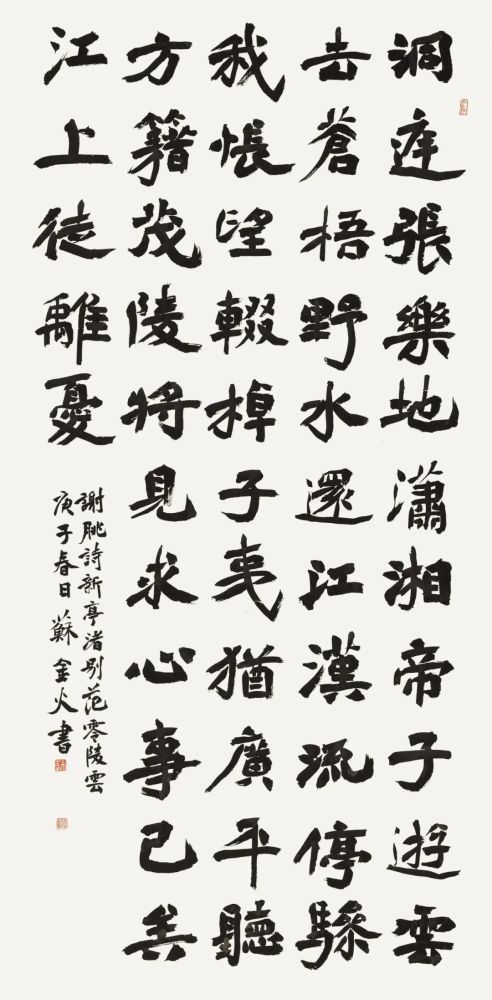 洞庭張樂地瀟湘帝子遊雲
去蒼梧野水還江漢流停驂
我悵望輟棹子夷猶廣平聽
方籍茂陵將見求心事已矣
江上徒離憂
謝朓詩新亭渚別范零陵雲
庚子春日蘇金火書